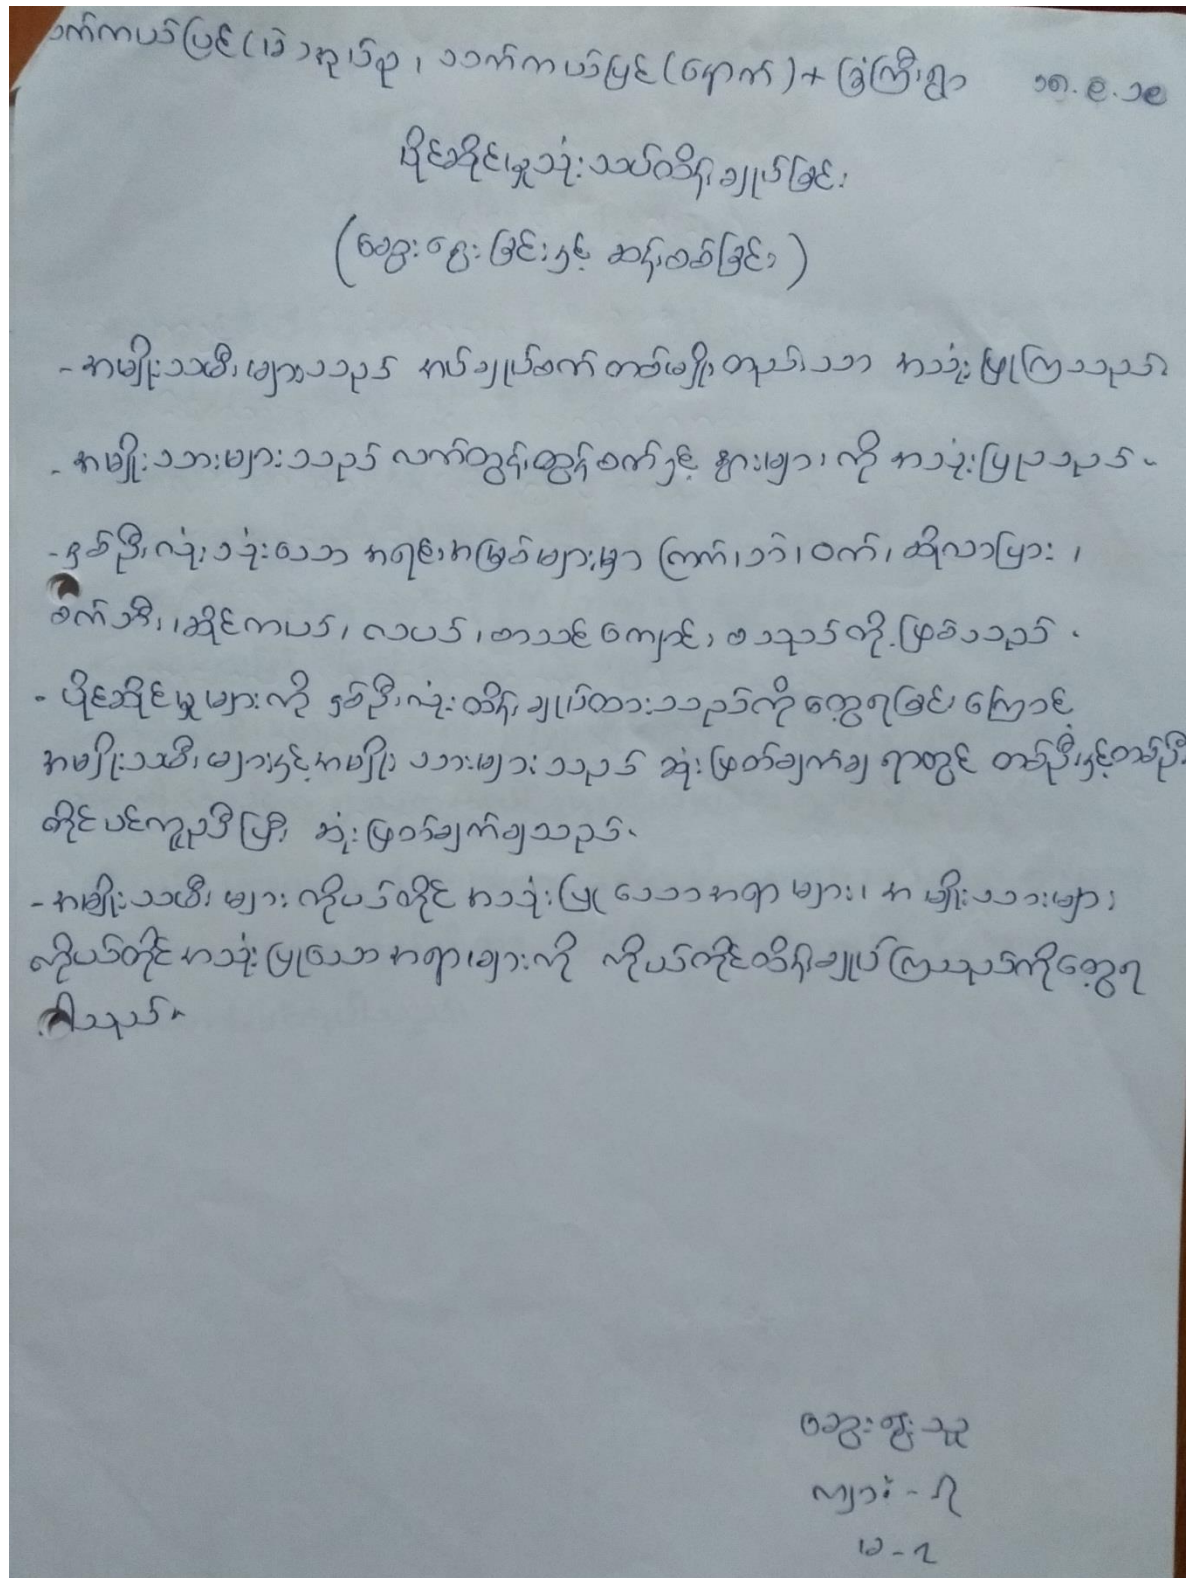 သက်ကယ်ပြင် ( ) အုပ်စု ၊ သက်ကယ်ပြင် (နောက်) + ခြံကြီးရွာ ၁၈.၉.၁၉
ပိုင်ဆိုင်မှုသုံးသပ်ထိန်းချုပ်ခြင်း
(ဆွေးနွေးခြင်းနှင့် ဆန်းစစ်ခြင်း)
- အမျိုးသမီးများသည် အပ်ချုပ်စက် တစ်မျိုးတည်းသာ အသုံးပြုကြသည်။
- အမျိုးသားများသည် လက်တွန်းထွန်စက်နှင့် နွားများကို အသုံးပြုသည်။
- နှစ်ဦးလုံးသုံးသော အရင်းအမြစ်များမှာ ကြက်၊ ဘဲ၊ ဝက်၊ ဆိုလာပြား ၊
စက်ဘီး၊ ဆိုင်ကယ်၊ လယ်၊ စာသင်ကျောင်း၊ စသည်တို့ ဖြစ်သည်။
- ပိုင်ဆိုင်မှုများကို နှစ်ဦးလုံးထိန်းချုပ်ထားသည်ကိုတွေ့ရခြင်းကြောင့်
အမျိုးသမီးများနှင့်အမျိုးသားများသည် ဆုံးဖြတ်ချက်ချရာတွင် တစ်ဦးနှင့်တစ်ဦး
တိုင်ပင်ကူညီပြီး ဆုံးဖြတ်ချက်ချသည်။
- အမျိုးသမီးများ ကိုယ်တိုင် အသုံးပြုသောအရာများ၊ အမျိုးသားများ
ကိုယ်တိုင်အသုံးပြုသောအရာများကို ကိုယ်တိုင်ထိန်းချုပ်ကြသည်ကိုတွေ့ရ
ပါသည်။
ဆွေးနွေးသူ
ကျား - ၇
မ - ၇